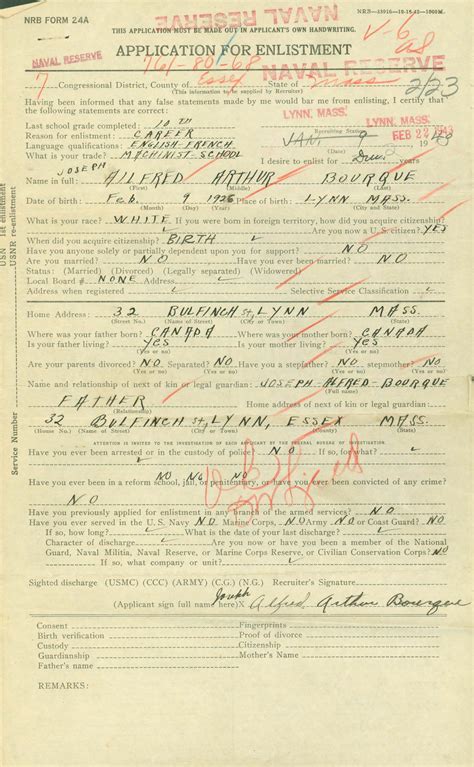 NRB FORM 24A
NRB—33916—10-15-42—100M.
THIS APPLICATION MUST BE MADE OUT IN APPLICANT'S OWN HANDWRITING.
NAVAL RESERVE
V-6
APPLICATION FOR ENLISTMENT
NAVAL RESERVE
761-801-68
NAVAL RESERVE
7 Congressional District, County of Essex State of Mass 2/23
(This information to be supplied by Recruiter)
Having been informed that any false statements made by me would bar me from enlisting, I certify that
the following statements are correct:
LYNN, MASS.
LYNN, MASS.
Last school grade completed: 10TH
Recruiting Station
FEB 22 1943
Reason for enlistment: CAREER
JAN. 9 1943
Language qualifications: ENGLISH-FRENCH
(Date)
What is your trade? MACHINIST-SCHOOL I desire to enlist for 2 years
JOSEPH
Name in full: ALFRED ARTHUR BOURQUE
(First) (Middle) (Last)
Date of birth: FEB. 9 1926 Place of birth: LYNN MASS.
(Month) (Day) (Year) (City and State)
What is your race? WHITE If you were born in foreign territory, how did you acquire citizenship?
Are you now a U.S. citizen? YES
When did you acquire citizenship? BIRTH (Yes or no)
Have you anyone solely or partially dependent upon you for support? NO
Are you married? NO Have you ever been married? NO
Status: (Married) (Divorced) (Legally separated) (Widowed)
Local Board # NONE Address
Address when registered Selective Service Classification
Home Address: 32 BULFINCH St, LYNN MASS.
(Street No.) (Name of Street) (City or Town) (State)
Where was your father born? CANADA Where was your mother born? CANADA
Is your father living? YES Is your mother living? YES
(Yes or no) (Yes or No)
Are your parents divorced? NO Separated? NO Have you a stepfather? NO stepmother? NO
(Yes or No) (Yes or No) (Yes or No) (Yes or No)
Name and relationship of next of kin or legal guardian: JOSEPH-ALFRED-BOURQUE
FATHER Home address of next of kin or legal guardian:
(Relationship)
32 BULFINCH St, LYNN, ESSEX MASS.
(House No.) (Name of Street) (City or Town) (County) (State)
ATTENTION IS INVITED TO THE INVESTIGATION OF EACH APPLICANT BY THE FEDERAL BUREAU OF INVESTIGATION
Have you ever been arrested or in the custody of police? NO If so, for what?
Have you ever been in a reform school, jail, or penitentiary, or have you ever been convicted of any crime?
NO
Have you previously applied for enlistment in any branch of the armed services? NO
Have you ever served in the U.S. Navy NO Marine Corps, NO Army NO or Coast Guard? NO
If so, how long? What is the date of your last discharge?
Character of discharge Are you now or have you been a member of the National
Guard, Naval Militia, Naval Reserve, or Marine Corps Reserve, or Civilian Conservation Corps? NO
If so, what company or unit?
Sighted discharge (USMC) (CCC) (ARMY) (C.G.) (N.G.) Recruiter's Signature
Joseph
(Applicant sign full name here) Alfred Arthur Bourque
Consent Fingerprints
Birth verification Proof of divorce
Custodian Citizenship
Guardianship Mother's Name
Father's name
REMARKS:
USN re enlistment
USNR re-enlistment
Service Number